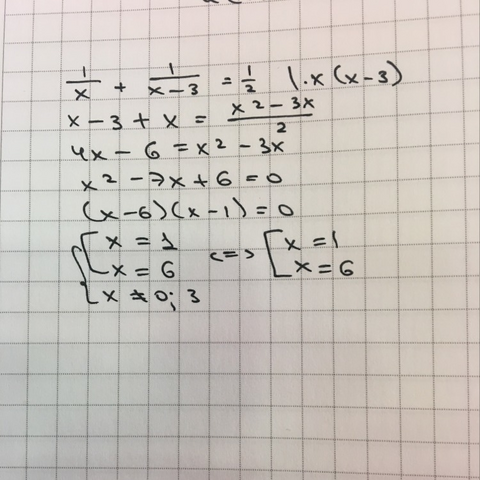 1/x + 1/(x-3) = 1/2 | · x (x-3)
x - 3 + x = (x² - 3x)/2
4x - 6 = x² - 3x
x² - 7x + 6 = 0
(x-6)(x-1) = 0
{[x = 1 <=> [x = 1
x = 6 x = 6
x ≠ 0; 3